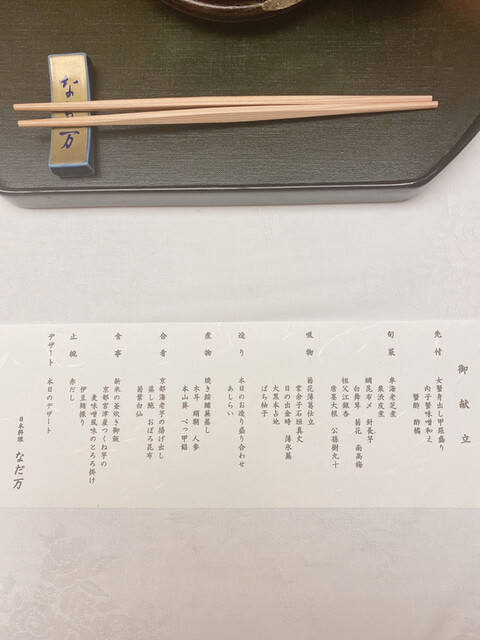 なだ万
御献立
先付
女蟹身出し甲羅盛り
内子蟹味噌和え
蟹酢 酢橘
旬菜
車海老芝煮
栗渋皮煮
鯛昆布〆 針長芋
白舞茸 菊花 南高梅
祖父江銀杏
唐墨大根 公孫樹丸十
吸物
菊花薄葛仕立
雲余子石垣真丈
日の出金時 薄氷蕪
大黒本占地
ばち柚子
造り
本日のお造り盛り合わせ
あしらい
煮物
焼き餅鱶蕪蒸し
木耳 絹鞘 人参
本山葵 べっ甲餡
合肴
京都海老芋の揚げ出し
蒸し鮑 おぼろ昆布
菊葉白仙
食事
新米の釜炊き御飯
京都宮津産つくね芋の
麦味噌風味のとろろ掛け
伊豆鯛滑り
止椀
赤だし
デザート
本日のデザート
日本料理 なだ万